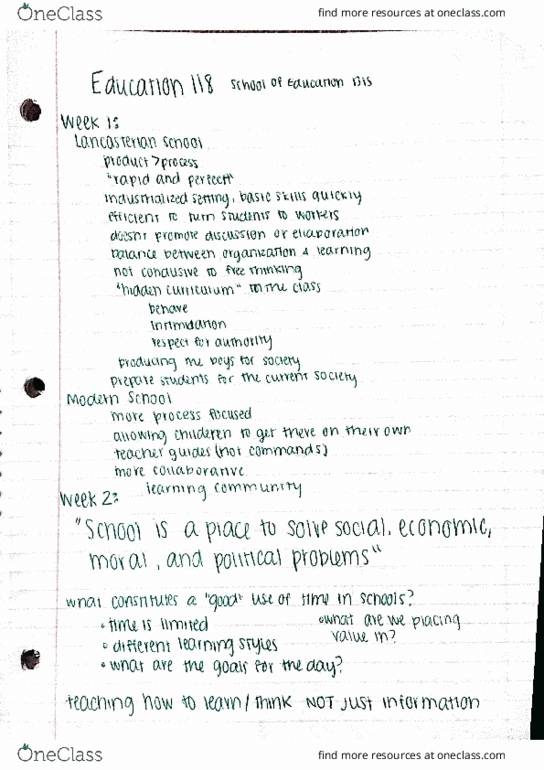 OneClass
find more resources at oneclass.com
Education 118 School of Education 1315
Week 1:
Lancasterian School
product > process
"rapid and perfect"
industrialized setting, basic skills quickly
efficient to turn students to workers
doesn't promote discussion or ellaboration
balance between organization & learning
not condusive to free thinking
"hidden curriculum" to the class
behave
intimidation
respect for authority
producing the boys for society
prepare students for the current society
Modern School
more process focused
allowing childeren to get there on their own
teacher guides (not commands)
more collaborative
learning community
Week 2:
"School is a place to solve social, economic,
moral, and political problems"
what constitutes a "good" use of time in schools?
• time is limited
• what are we placing
value in?
• different learning styles
• what are the goals for the day?
teaching how to learn/think NOT just information
OneClass
find more resources at oneclass.com